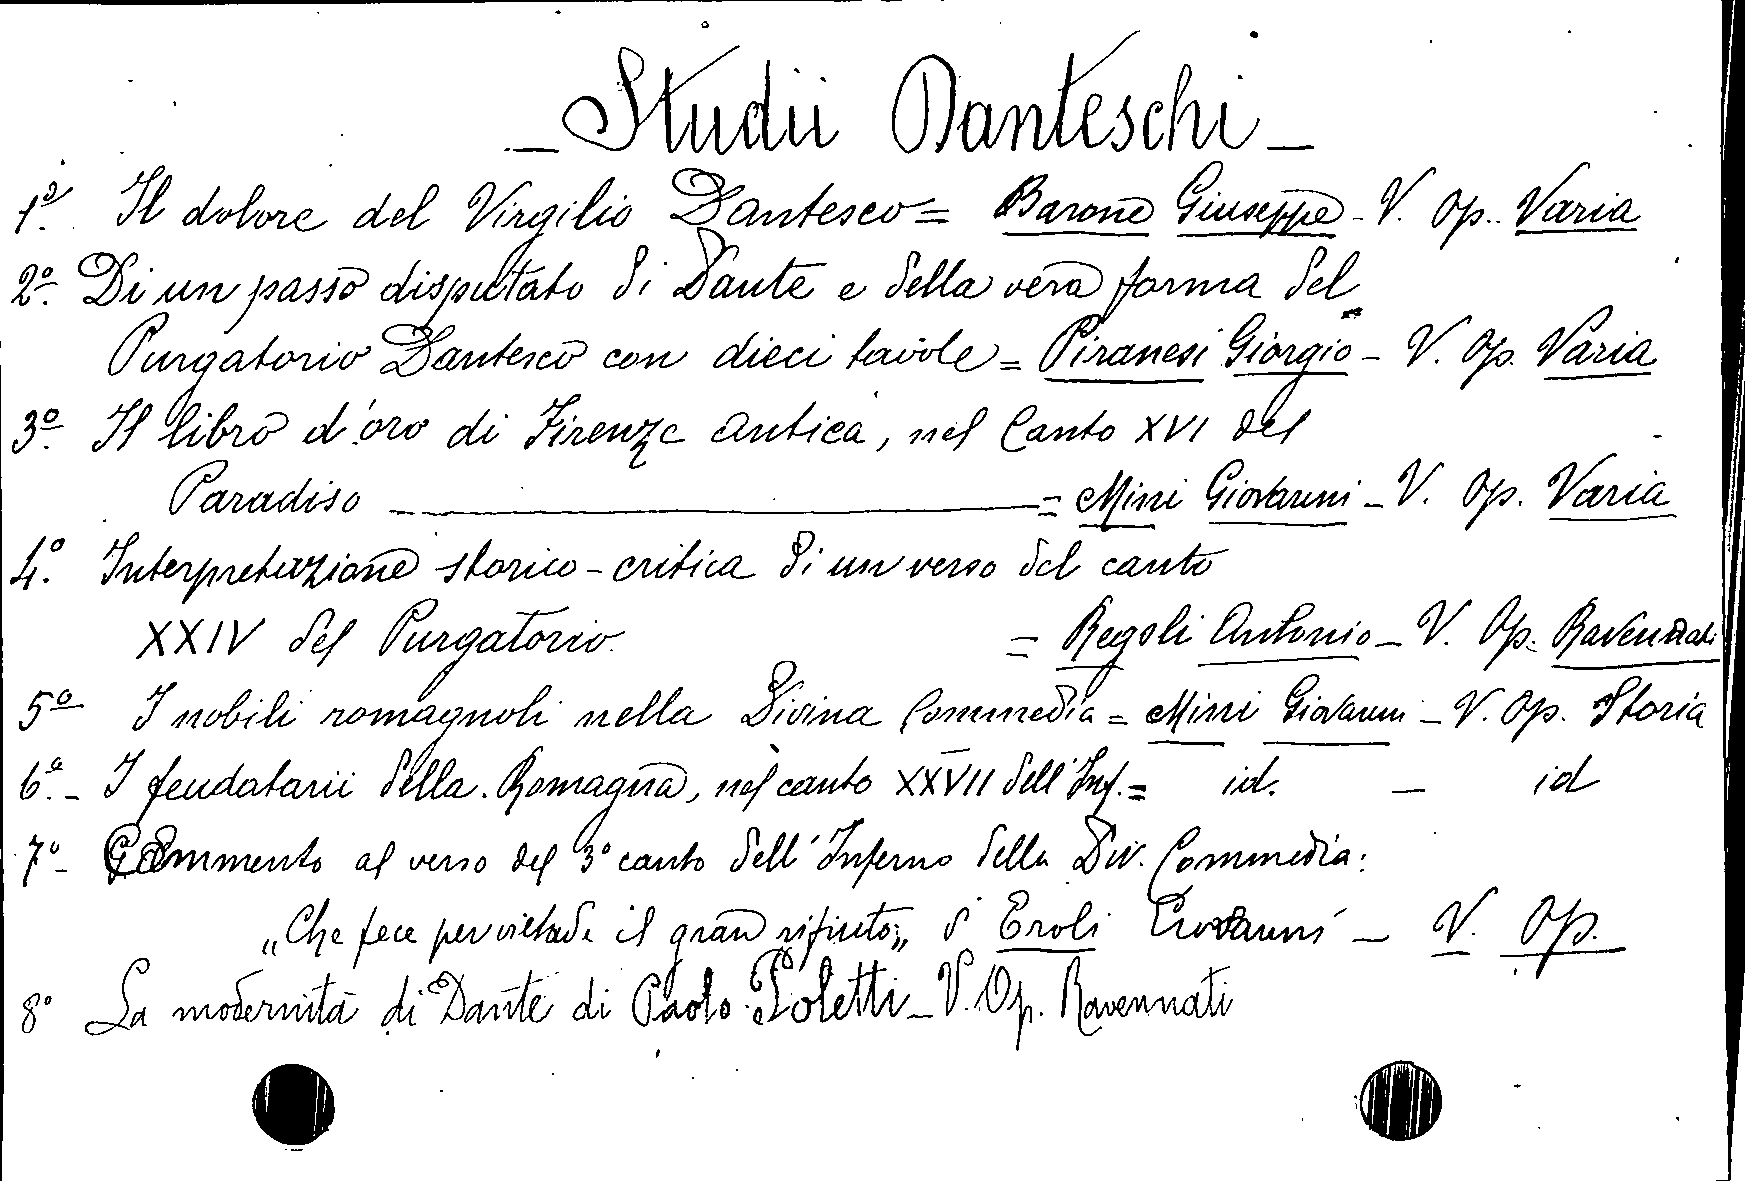 – Studii Danteschi –
1º. Il dolore del Virgilio Dantesco = Barone Giuseppe – V. Op. Varia
2º. Di un passo disputato di Dante e della vera forma del
Purgatorio Dantesco con dieci tavole = Piranesi Giorgio – V. Op. Varia
3º. Il libro d'oro di Firenze antica, nel Canto XVI del
Paradiso ——— = Mini Giovanni – V. Op. Varia
4.º Interpretazione storico-critica di un verso del canto
XXIV del Purgatorio. = Regoli Antonio – V. Op. Ravennati
5º I nobili romagnoli nella Divina Commedia = Mini Giovanni – V. Op. Storia
6.º – I feudatarii della Romagna, nel canto XXVII dell'Inf. = id. – id
7º – Commento al verso del 3º canto dell'Inferno della Div. Commedia:
„Che fece per viltade il gran rifiuto„ di Eroli Giovanni – V. Op.
8º La modernità di Dante di Paolo Poletti – V. Op. Ravennati